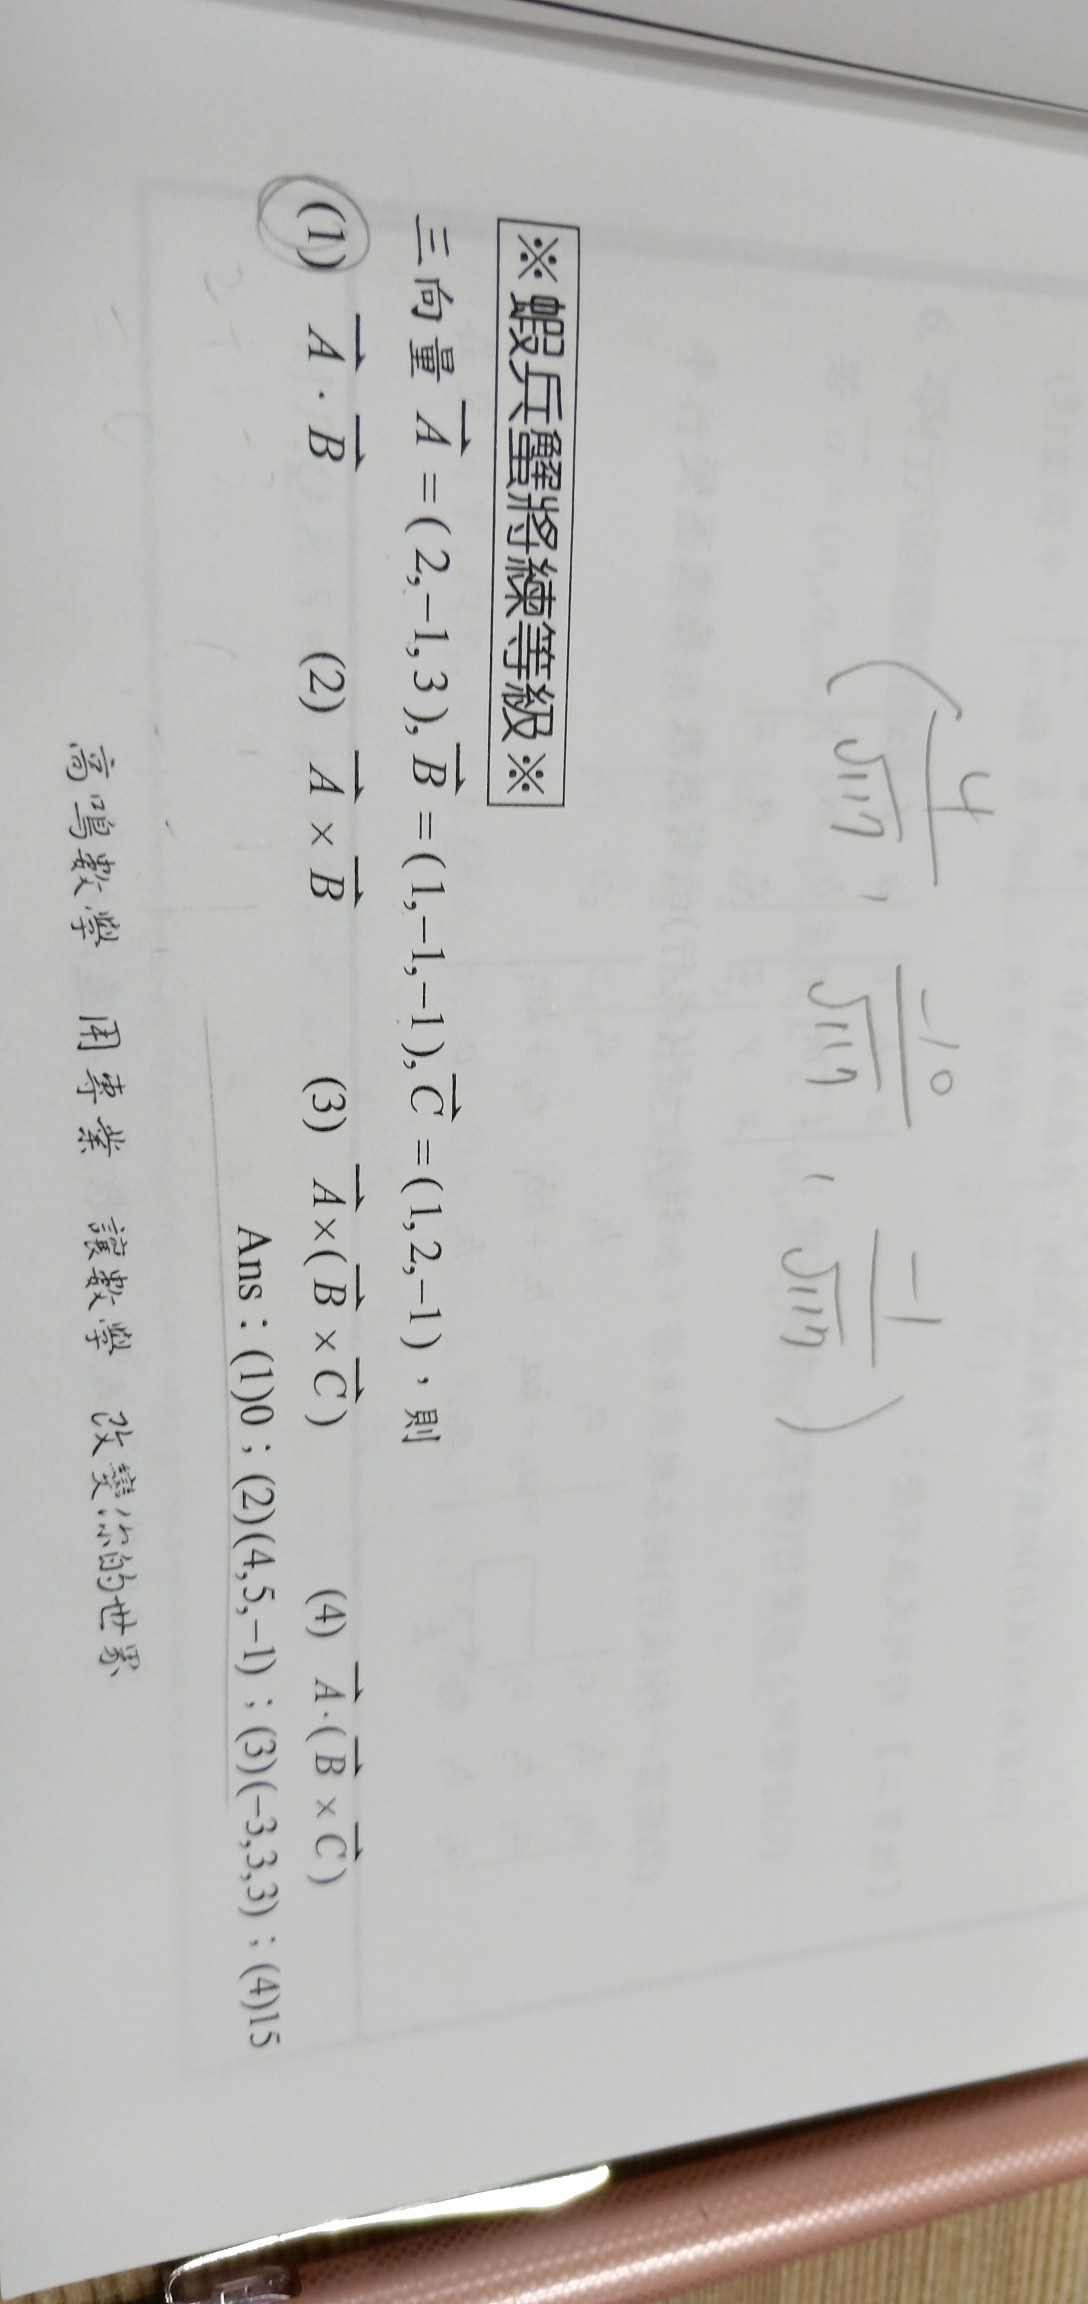 (4/√117, -10/√117, -1/√117)
※蝦兵蟹將練等級※
三向量 A⃗ =(2,−1,3), B⃗ =(1,−1,−1), C⃗ =(1,2,−1)，則
(1) A⃗ · B⃗ (2) A⃗ × B⃗ (3) A⃗ ×( B⃗ × C⃗ ) (4) A⃗ ·( B⃗ × C⃗ )
Ans：(1)0；(2)(4,5,−1)；(3)(−3,3,3)；(4)15
高鳴數學 用專業 讓數學 改變你的世界